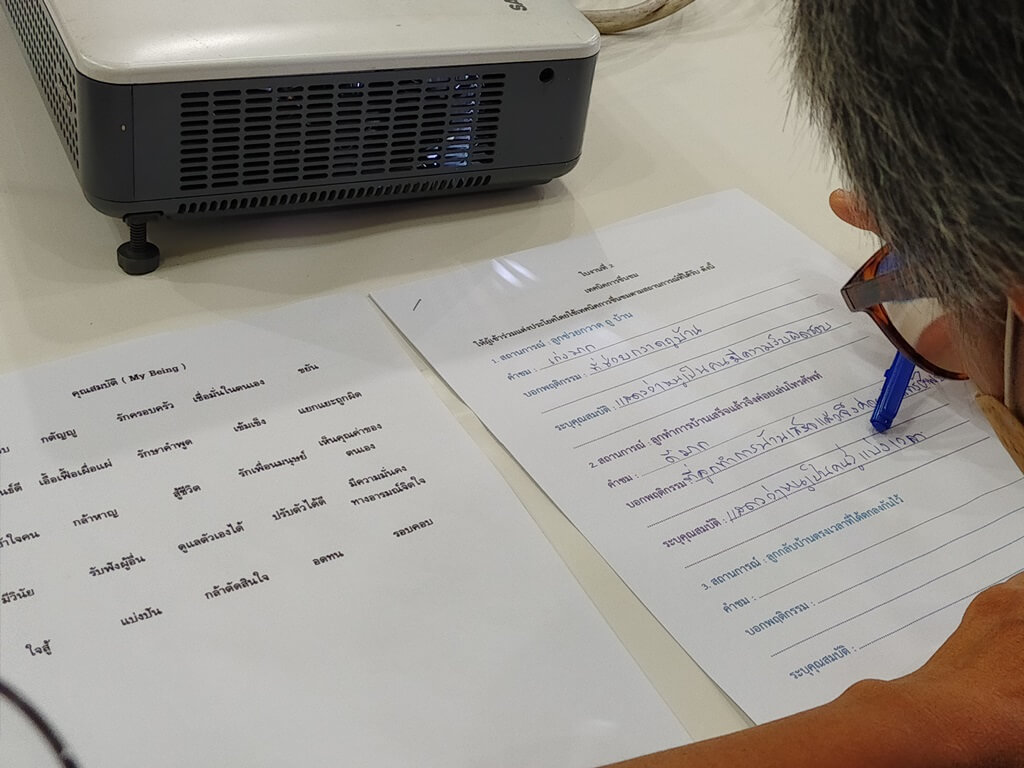 คุณสมบัติ ( My Being )
กตัญญู รักครอบครัว เชื่อมั่นในตนเอง ขยัน
เอื้อเฟื้อเผื่อแผ่ รักษาคำพูด เข้มแข็ง แยกแยะถูกผิด
กล้าหาญ สู้ชีวิต รักเพื่อนมนุษย์ เห็นคุณค่าของตนเอง
รับฟังผู้อื่น ดูแลตัวเองได้ ปรับตัวได้ดี มีความมั่นคงทางอารมณ์จิตใจ
มีวินัย แบ่งปัน กล้าตัดสินใจ อดทน รอบคอบ
ใจสู้
ใบงานที่ 2
เทคนิคการชื่นชม
ให้ผู้เข้าร่วมแต่งประโยคโดยใช้เทคนิคการชื่นชมตามสถานการณ์ที่ได้รับ ดังนี้
1. สถานการณ์ : ลูกช่วยกวาด ถู บ้าน
คำชม : เก่งมาก
บอกพฤติกรรม : ที่ช่วยกวาดถูบ้าน
ระบุคุณสมบัติ : แสดงว่าหนูเป็นคนมีความรับผิดชอบ
2. สถานการณ์ : ลูกทำการบ้านเสร็จแล้วจึงค่อยเล่นโทรศัพท์
คำชม : ดีมาก
บอกพฤติกรรม : ที่ลูกทำการบ้านเสร็จแล้วจึง
ระบุคุณสมบัติ : แสดงว่าหนูเป็นคนรู้แบ่งเวลา
3. สถานการณ์ : ลูกกลับบ้านตรงเวลาที่ได้ตกลงกันไว้
คำชม :
บอกพฤติกรรม :
ระบุคุณสมบัติ :